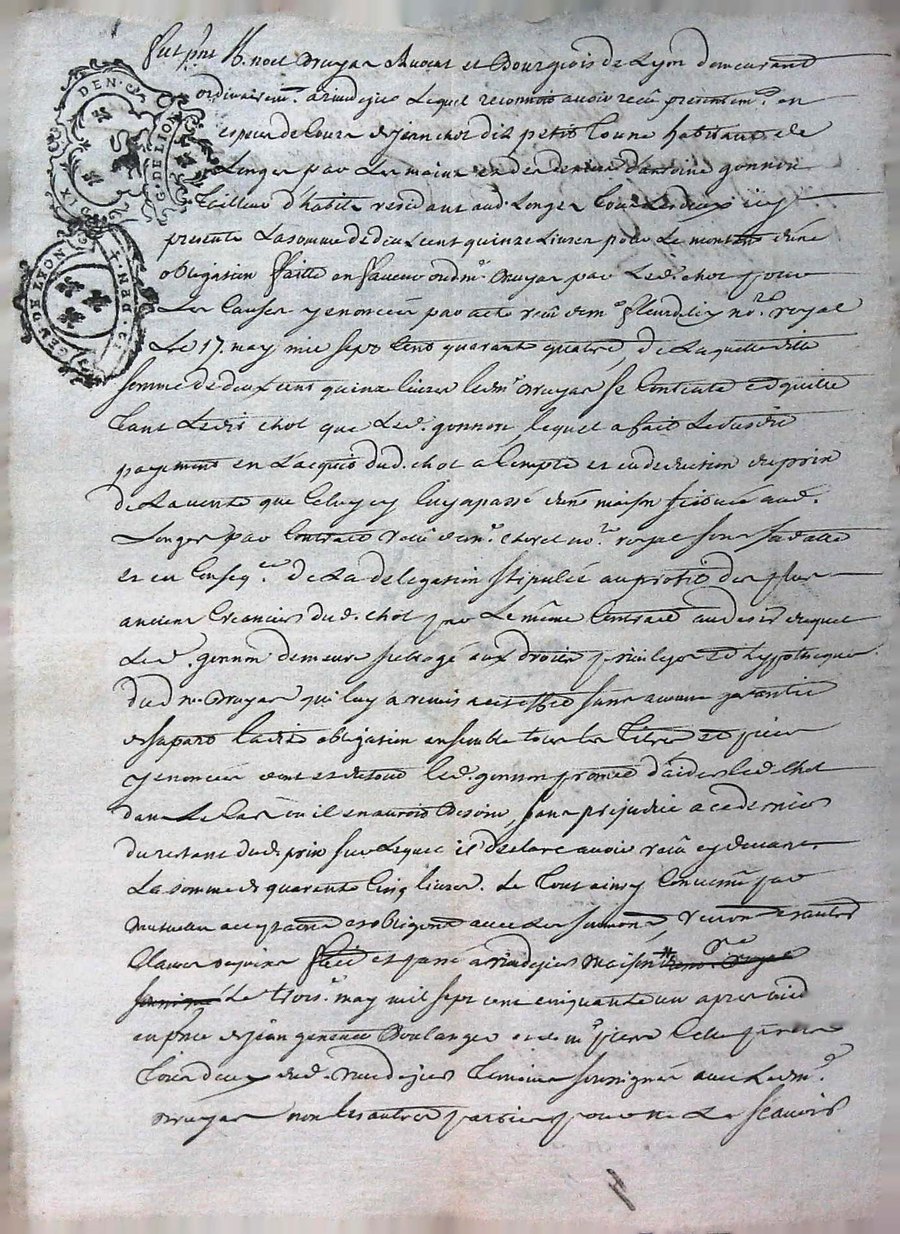 DEN.
G. DE LION
IX D
GEN. DE LYON
12. DEN. 1
Fut pnt Me. noel Druyar avocat et Bourgeois de Lyon demeurant
ordinairemt. a rivedegier Lequel reconnois avoir recu presentemt. en
especes de cours de jean chol dit petit habitant de
Longes par Les mains et des deniers d'antoine gonnon
Tailleur d'habits residant aud. Longes tous Les deux icy
presents La somme de deux cent quinze Livres pour Le montant d'une
obligation faitte en faveur dud. me. Druyar par Led. chol pour
Les causes y enoncées par acte recu de me. fleurdelix nore. royal
Le 17. may mil sept cent quarante quatre, de Laquelle ditte
somme de deux cent quinze livres led. me. Druyar se contente et quitte
tant Ledit chol que Led. gonnon, lequel a fait Le susdit
payement en L'acquis dud. chol a compte et en deduction du prix
de La vente que celuy cy luy a passé d'une maison scituée aud.
Longes par contract recu de me. nore. royal sous sa datte
et en conseqce. de La delegation stipulée au profit des plus
anciens creanciers dud. chol par Le même contract au desir duquel
Led. gonnon demeure subrogé aux droits privileges et hypotheques
dud. me. Druyar qui luy a remis sans aucune garantie
de sa part ladite obligation ensemble tous les titres et pieces
y enoncées dont et du tout led. gonnon promet d'aider led. chol
dans Le cas ou il en auroit Besoin, sans prejudice a ce dernier
du restant dud. prix sur Lequel il declare avoir recu cy devant
La somme de quarante cinq livres. Le tout ainsy convenu par
mutuelle acceptation et obligons. avec Les soumons, renons. et autres
clauses requises fait et passé a rivedegier maison
Le trois. may mil sept cent cinquante un apres midi
en pnce de jean Boulanger et de me. piere
tous deux dud. rivedegier temoins soussignés avec Led. me.
Druyar non les autres parties pour ne Le scavoir